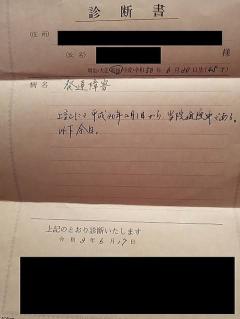 診断書
(住所)
(氏名)
明治・大正・昭和・平成・令和50年6月20日生(45才)
病名 発達障害
上記にて平成30年2月1日から、当院通院中である。
以下余白。
上記のとおり診断いたします
令和3年6月17日